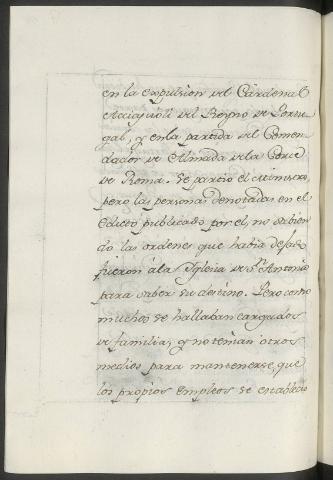 en la expulsion del Cardenal
Acciajuoli del Reyno de Portu
gal, y en la partida del Comen
dador de Almada de la Corte
de Roma. Se partio el Ministro,
pero las personas denotadas en el
Edicto publicado por el, no sabien
do las ordenes que habia dejado
fueron à la Iglesia de Sn. Antonio
para saber su destino. Pero como
muchos se hallaban cargados
de familia, y no tenian otros
medios para mantenerse, que
los propios empleos se estableció